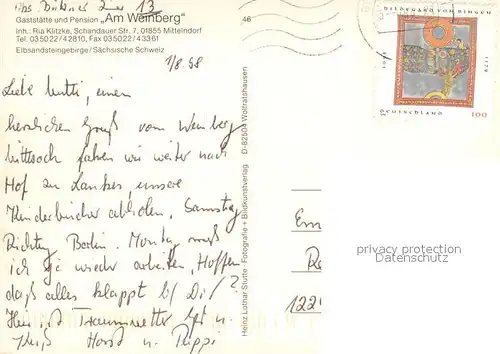 13
Gaststätte und Pension „Am Weinberg"
Inh.: Ria Klitzke, Schandauer Str. 7, 01855 Mitteldorf
Tel. 03 50 22 / 4 28 10, Fax 0 35022 / 4 33 61
Elbsandsteingebirge/Sächsische Schweiz
1/8.98
Liebe Mutti, einen
herzlichen Gruß vom Weinberg
Mittwoch fahren wir weiter nach
Hof zu Lankes, unsere
Kinderbücher abholen, Samstag
Richtung Berlin. Montag muß
ich ja wieder arbeiten, Hoffen
daß alles klappt bei Dir?
Hier ist Traumwetter
Horst u.
46
Heinz Lothar Stutte · Fotografie + Bildkunstverlag D-82504 Wolfratshausen
HILDEGARD VON BINGEN
1098
1179
DEUTSCHLAND 100
122
privacy protection
Datenschutz